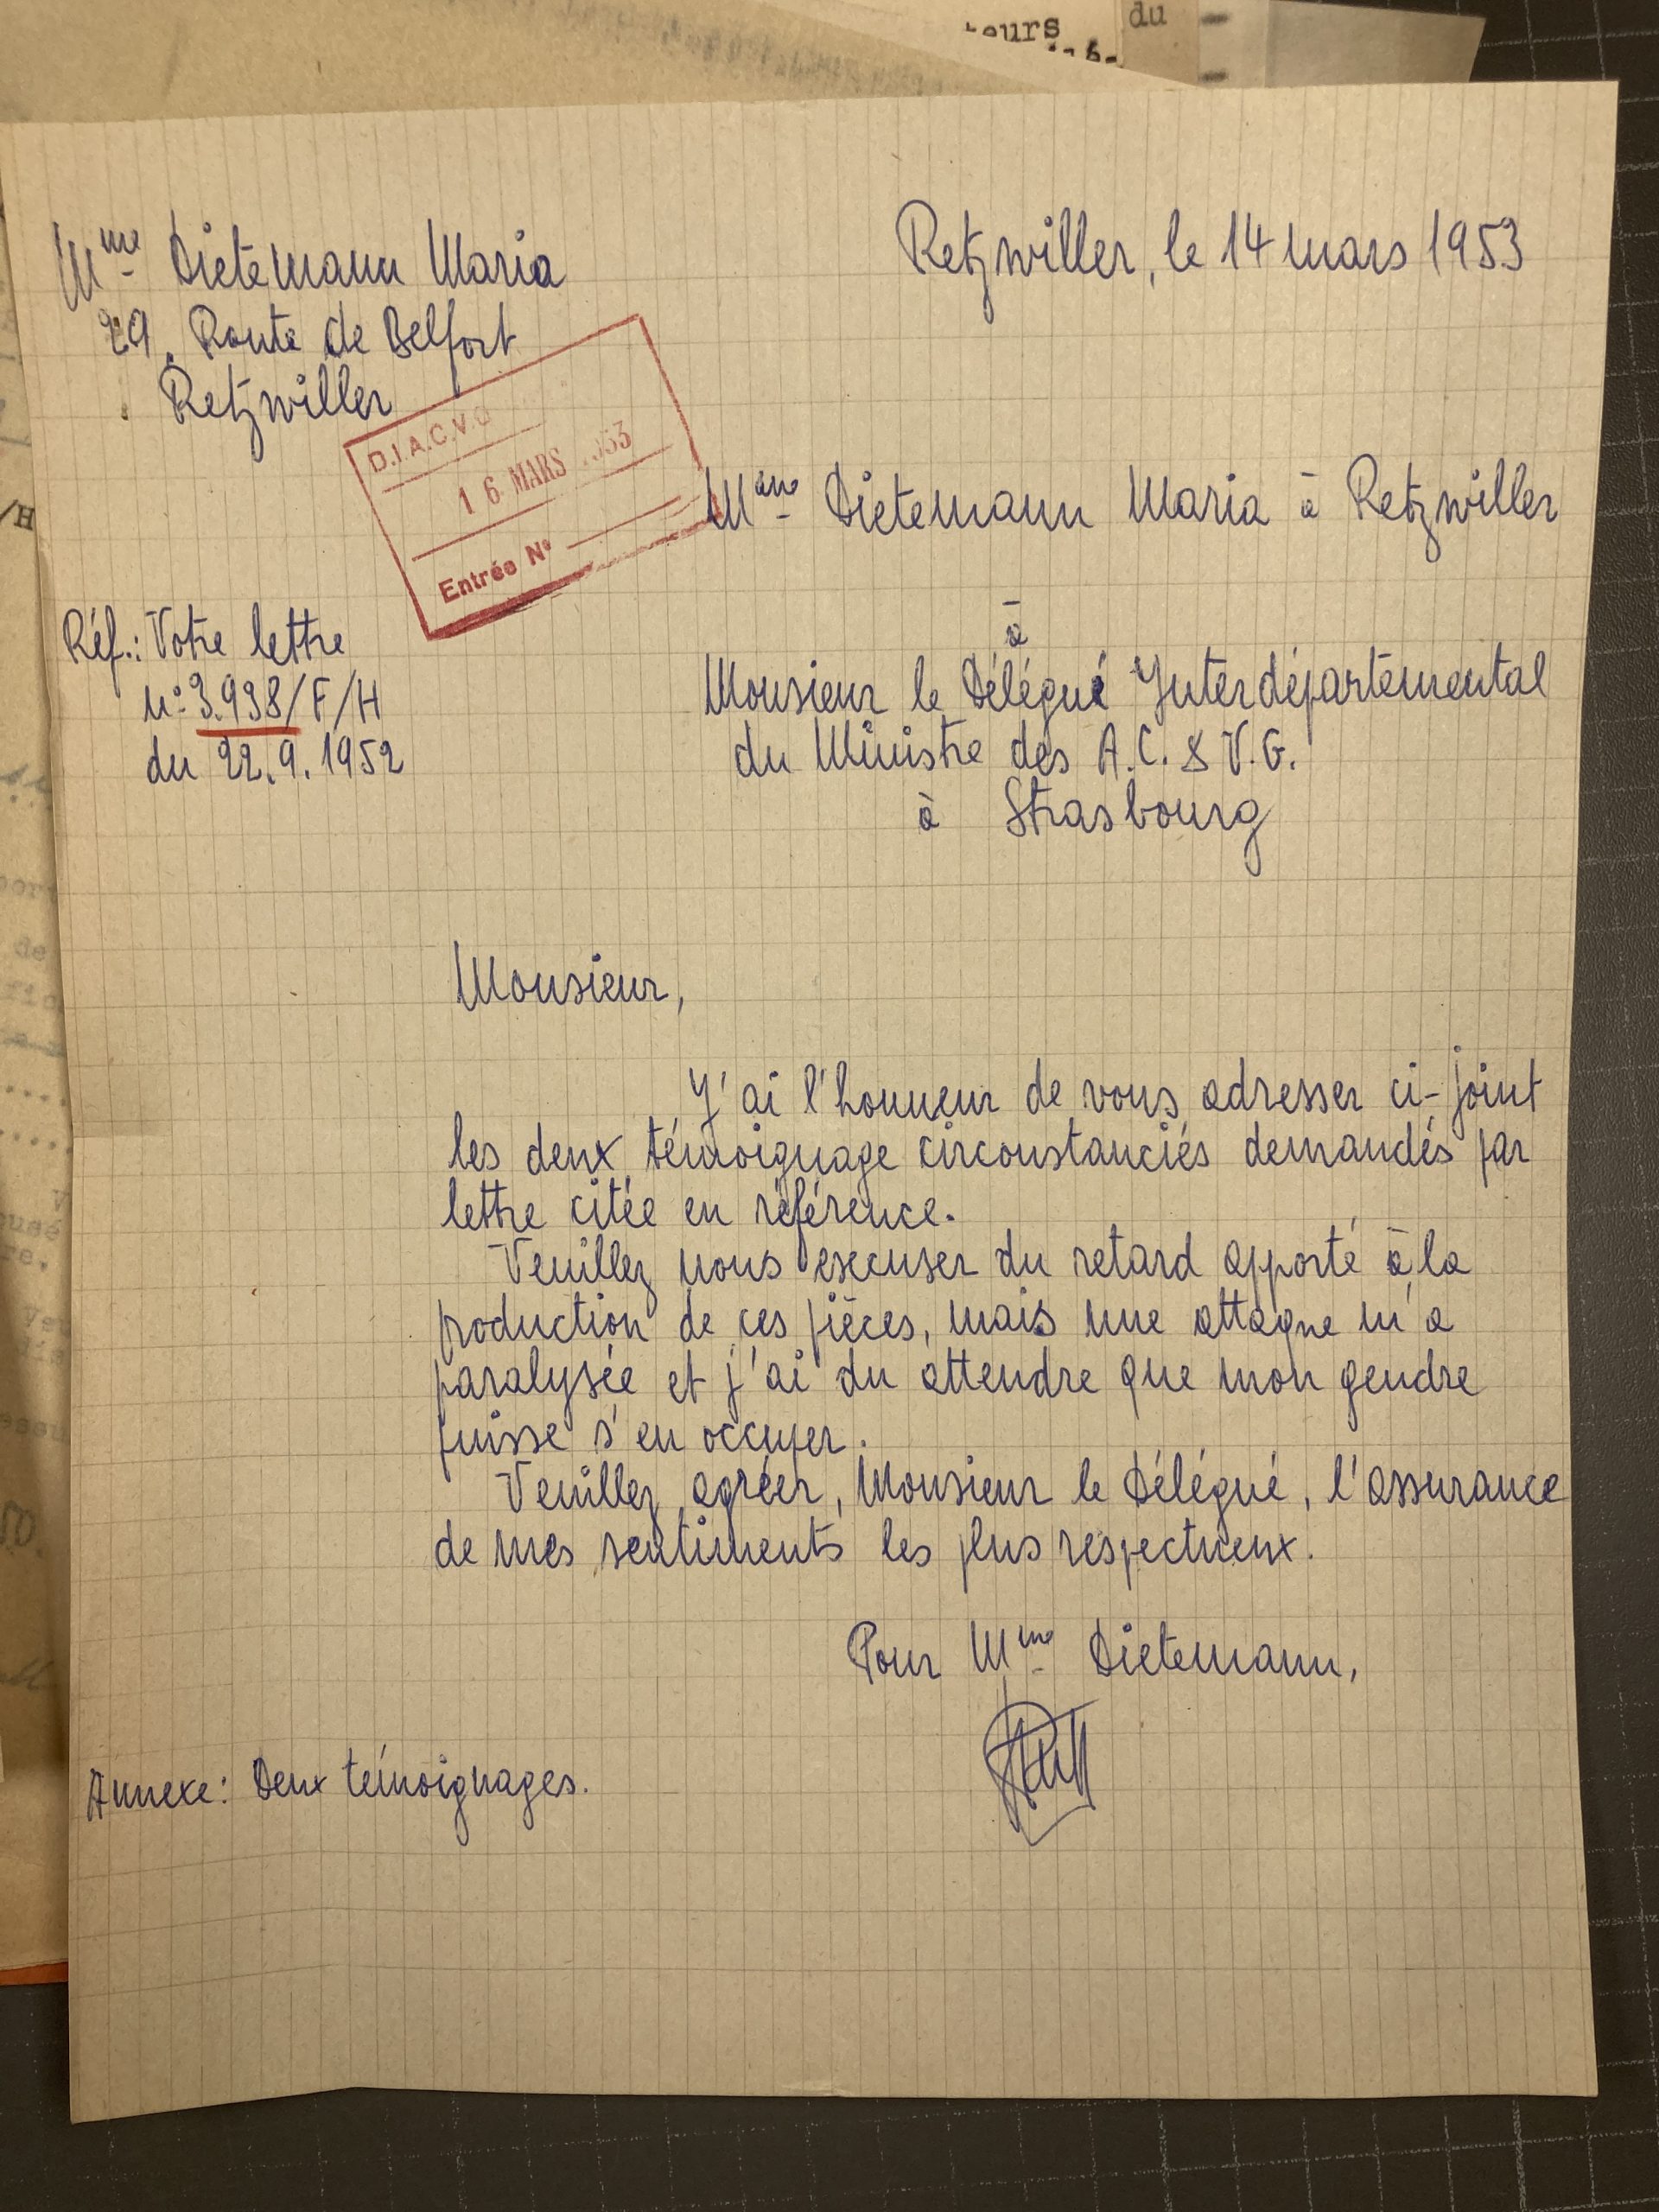 eurs
du
Mme Dietemann Maria
29, Route de Belfort
Retzwiller
Retzwiller, le 14 mars 1953
D.I.A.C.V.G
16 MARS 1953
Entrée N°
Mme Dietemann Maria à Retzwiller
à
Réf.: Votre lettre
n° 3.938/F/H
du 22.9.1952
Monsieur le Délégué Interdépartemental
du Ministre des A.C. & V.G.
à Strasbourg
Monsieur,
J'ai l'honneur de vous adresser ci-joint
les deux témoignage circonstanciés demandés par
lettre citée en référence.
Veuillez nous excuser du retard apporté à la
production de ces pièces, mais une attaque m'a
paralysée et j'ai du attendre que mon gendre
puisse s'en occuper.
Veuillez agréer, Monsieur le Délégué, l'assurance
de mes sentiments les plus respectueux.
Pour Mme Dietemann,
Annexe: Deux témoignages.
/H
de